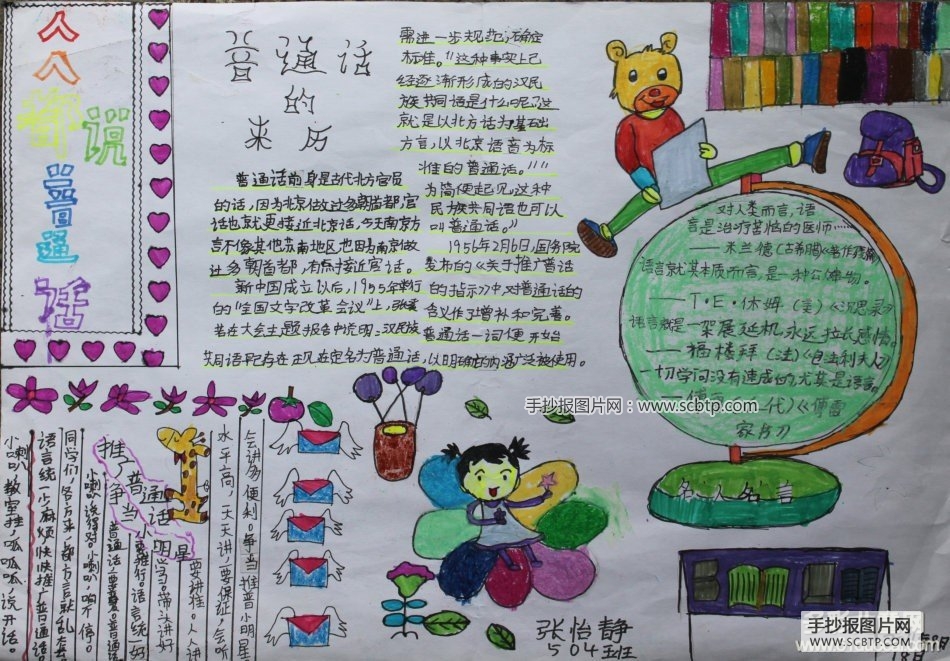 人人
都说
普通
话
普通话
的
来历
普通话前身是古代北方官员
的话,因为北京做过多朝首都,官
话也就更接近北京话,今天南京方
言不像其他苏南地区,也因为南京做
过多朝首都,有点接近官话。
新中国成立以后,1955年举行
的“全国文字改革会议”上,张奚
若在大会主题报告中说明,汉民族
共同语早已存在,正式定名为普通话,
需进一步规范,确定
标准。“这种事实上已
经逐渐形成的汉民
族共同语是什么呢?这
就是以北方话为基础
方言,以北京语音为标
准的普通话。”“
为简便起见,这种
民族共同语也可以
叫普通话。”
1956年2月6日,国务院
发布的《关于推广普通话
的指示》中,对普通话的
含义作了增补和完善。
普通话一词便开始
以明确的内涵广泛被使用。
对人类而言,语
言是治疗苦恼的医师……
——米兰德(古希腊)《著作残篇》
语言就其本质而言,是一种公众事物。
——T·E·休姆(美)《沉思录》
语言就是一架展延机,永远拉长感情。
——福楼拜(法)《包法利夫人》
一切学问没有速成的,尤其是语言。
——傅雷(现代)《傅雷
家书》
名人名言
手抄报图片网:www.scbtp.com
推广普通话
争当小明星
小喇叭,教室挂,呱呱呱,说开话。
语言统一少麻烦,快快推广普通话。
同学们,各方来,都方言就乱套
小喇叭说得对,小喇叭响不停。
普通话,要普及,普通话
要推行。语言统一好
学习,带头讲好
要讲推。人人讲
水平高,天天讲,要保证,会听
会讲多便利。争当推普小明星
张怡静
504班
手抄报图片网
WWW.SCBTP.COM